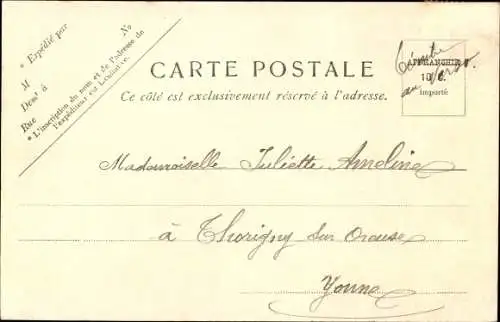 * Expédié par
M
Demt à
Rue
No
* L'inscription du nom et de l'adresse de
l'expéditeur est facultative.
CARTE POSTALE
Ce côté est exclusivement réservé à l'adresse.
AFFRANCHIR
10 c.
Importé
au verso
Mademoiselle Juliette Ameline
à Thorigny sur Oreuse
Yonne